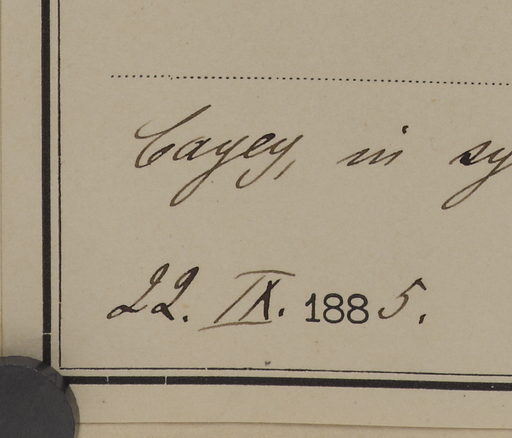 Cayey, in sy
22. IX. 1885.